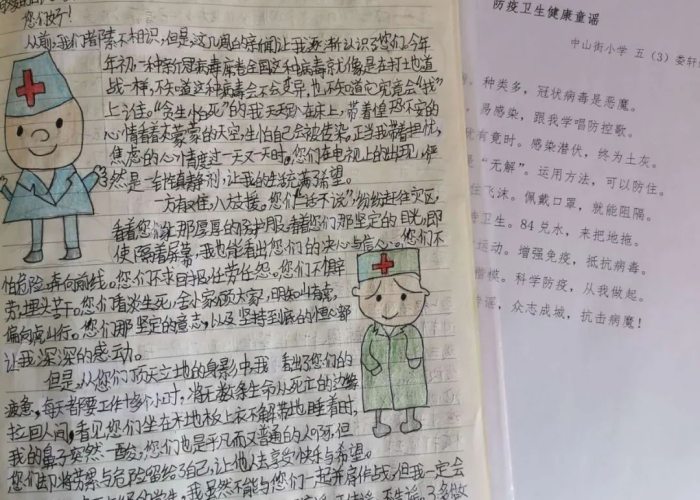 您们好!
从前,我们者陌素不相识,但是,这几周的亲闻让我逐渐认识了您们。今年
年初,一种新冠病毒席卷全国,这种病毒就像是在打地道
战一样,不知道这种病毒会不会变异,也不知道它究竟会"找"
上谁。"贪生怕死"的我天天趴在床上,带着惶恐不安的
心情看着灰蒙蒙的天空,生怕自己会被传染。正当我带着担忧,
焦虑的心情度过一天又一天时,您们在电视上的出现,俨
然是一针镇静剂,让我的生活充满了希望。
一方有难,八方援。您们"二话不说",纷纷赶往灾区,
看着您们那厚厚的防护服,看着您们那坚定的目光,即
使隔着屏幕,我也能看出您们的决心与信心。您们不
怕危险,奔向前线。您们不求回报,任劳任怨。您们不惧辛
劳,埋头苦干。您们看淡生死,舍小家顾大家,明知山有虎,
偏向虎山行。您们那坚定的意志,以及坚持到底的恒心都
让我深深的感动。
但是,从您们顶天立地的身影中我看出了您们的
疲惫,每天都要工作十多个小时,将无数条生命从死亡的边缘
拉回人间,看见您们坐在木地板上衣不解带地睡着时,
我的鼻子突然一酸,您们也是平凡而又普通的人啊,但
您们却将劳累与危险留给了自己,让他人去享受快乐与希望。
学生,我虽然不能与您们一起并肩作战,但我一定会
防疫卫生健康童谣
中山街小学 五(3)娄轩
种类多,冠状病毒是恶魔。
易感染,跟我学唱防控歌。
有竟时。感染潜伏,终为土灰。
是"无解"。运用方法,可以防住。
住飞沫。佩戴口罩,就能阻隔。
卫生。84兑水,来把地拖。
运动。增强免疫,抵抗病毒。
楷模。科学防疫,从我做起。
谣,众志成城,抗击病魔!